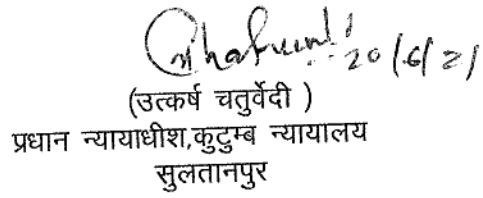 20/6/21
(उत्कर्ष चतुर्वेदी )
प्रधान न्यायाधीश,कुटुम्ब न्यायालय
सुलतानपुर